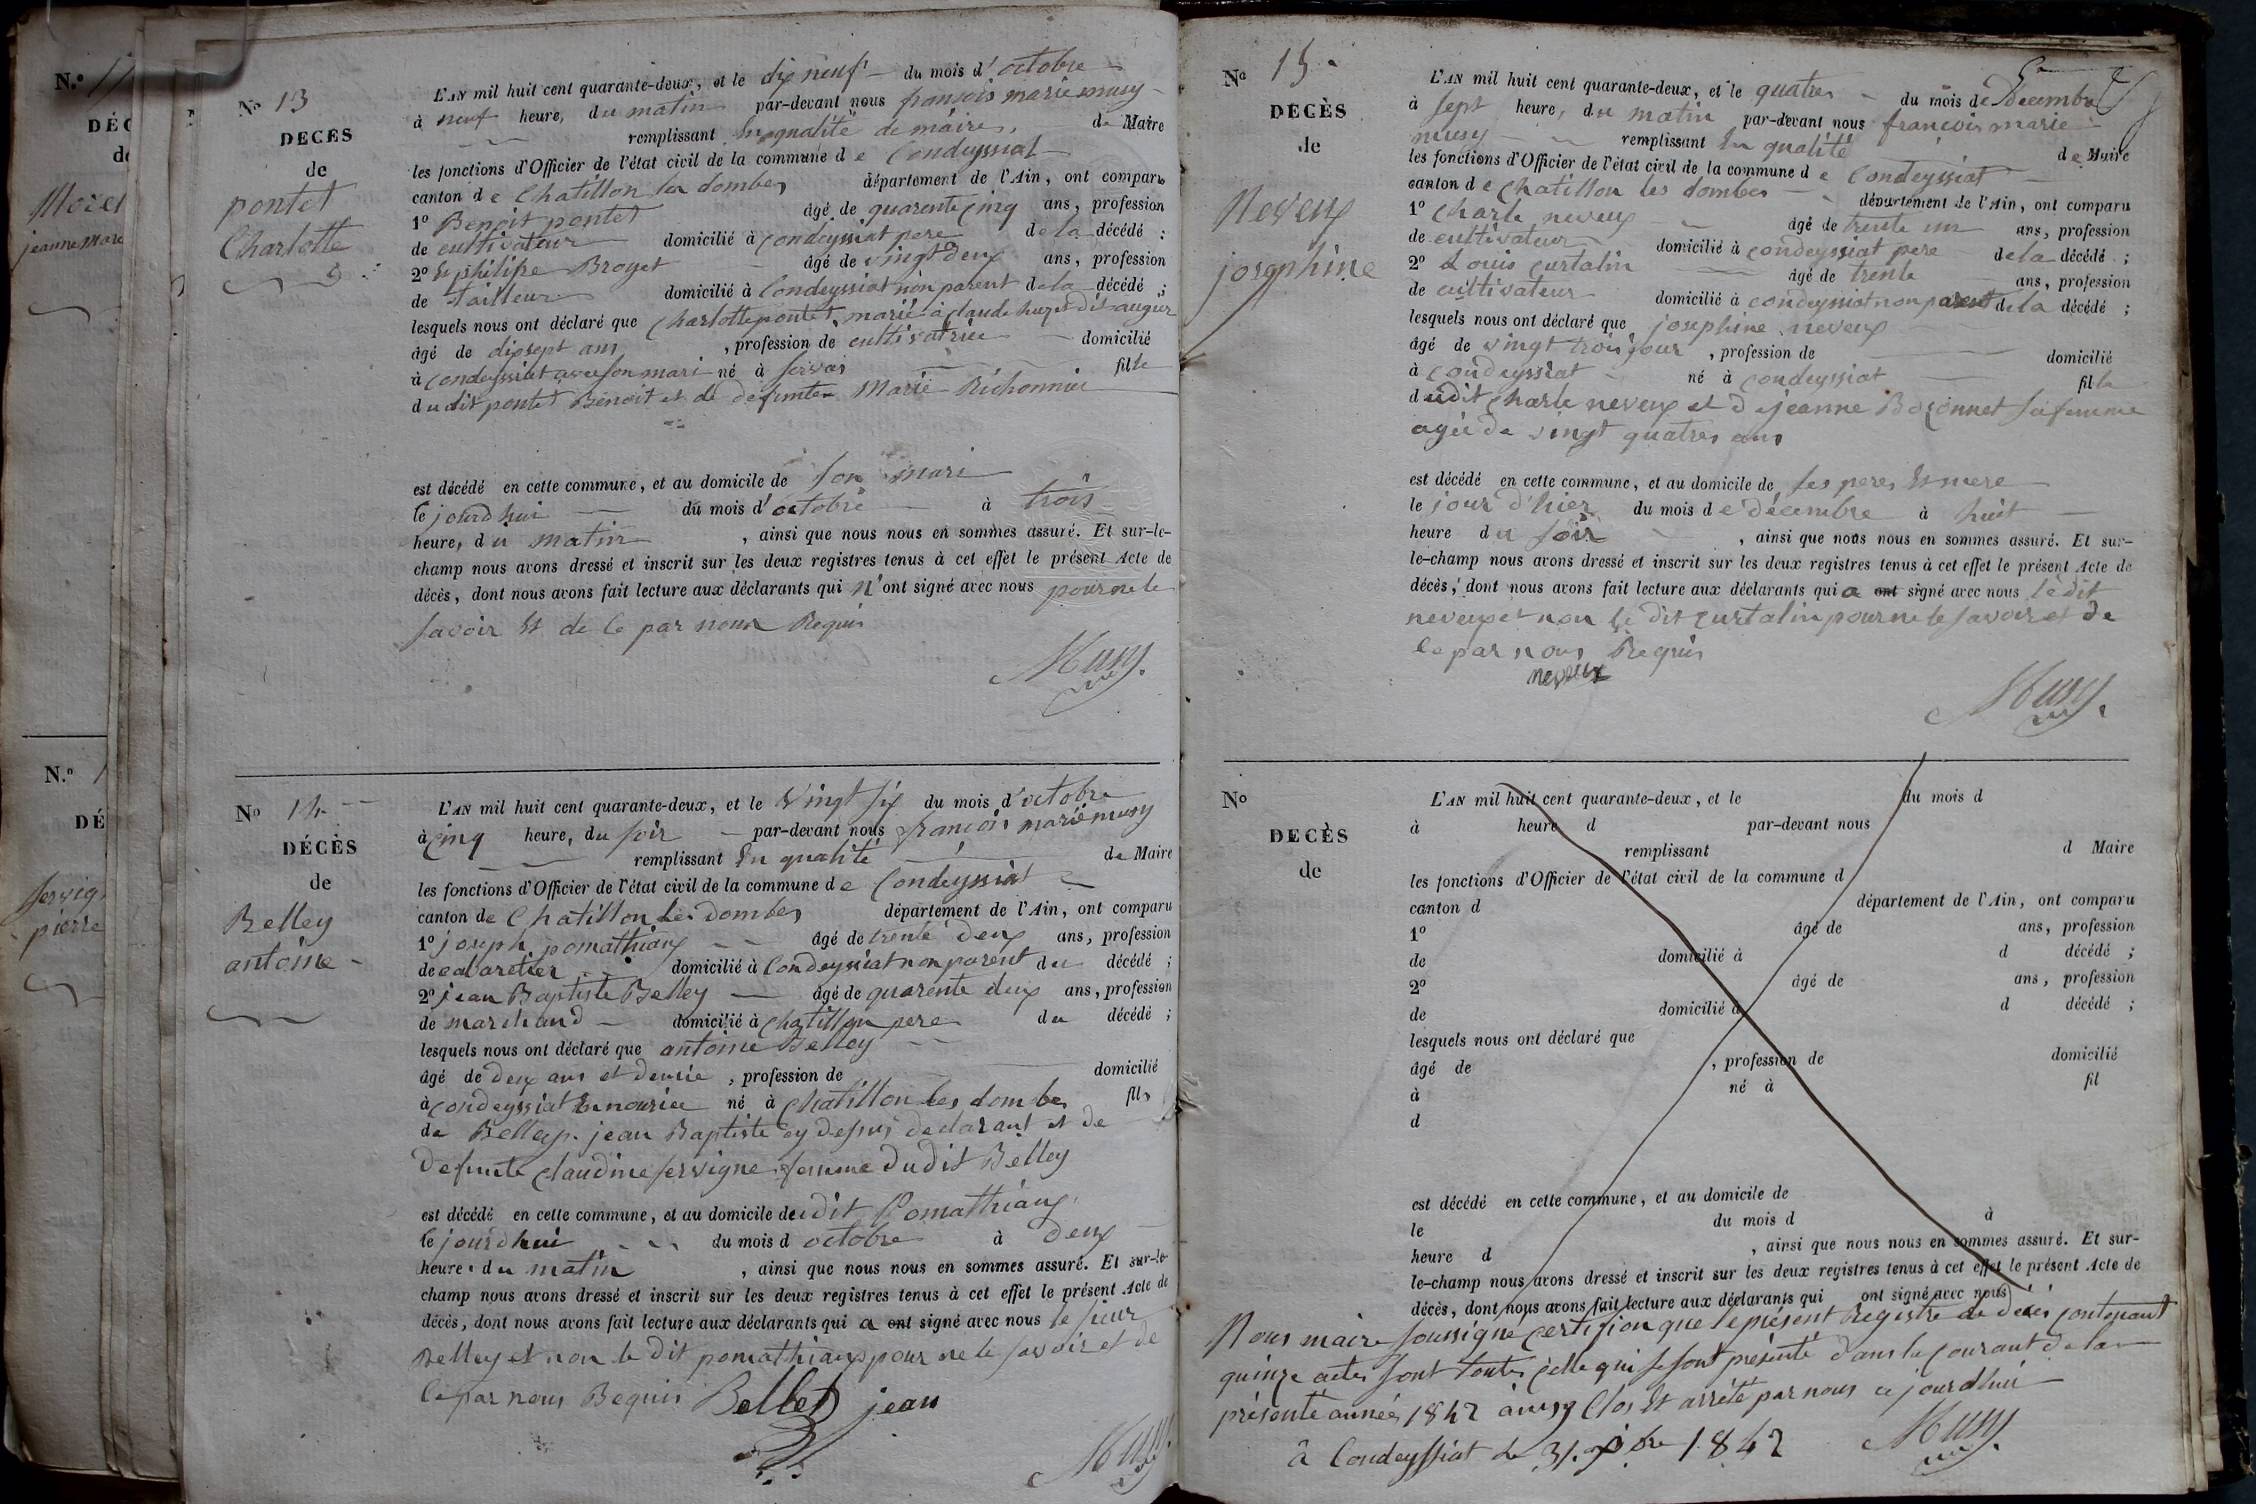 N.º
DÉC
de
Morel
jeanne Marie
N.º 1
DÉ
Servig
pierre
Nº 13
DECES
de
pontet
Charlotte
L'AN mil huit cent quarante-deux, et le dix neuf du mois d'octobre
à neuf heure, du matin par-devant nous fransois marie musy
remplissant En qualité de maire, de Maire
les fonctions d'Officier de l'état civil de la commune de Condeyssiat
canton de Chatillon les dombes département de l'Ain, ont comparu
1º Benoit pontet âgé de quarente cinq ans, profession
de cultivateur domicilié à condeyssiat pere de la décédé ;
2º philipe Broyet âgé de vingt deux ans, profession
de tailleur domicilié à Condeyssiat non parent de la décédé ;
lesquels nous ont déclaré que Charlotte pontet, marié à claude dit
âgé de dix sept ans, profession de cultivatrice domicilié
à condeyssiat avec son mari né à servas fille
dudit pontet Benoit et de defunte Marie Richonnier
est décédé en cette commune, et au domicile de son mari
le jourdhui du mois d'octobre à trois
heure, du matin, ainsi que nous nous en sommes assuré. Et sur-le-
champ nous avons dressé et inscrit sur les deux registres tenus à cet effet le présent Acte de
décès, dont nous avons fait lecture aux déclarants qui n'ont signé avec nous pour ne le
savoir Et de ce par nous Requis
Musy.
Nº 14
DÉCÈS
de
Belley
antoine
L'AN mil huit cent quarante-deux, et le vingt six du mois d'octobre
à cinq heure, du soir par-devant nous françois marie musy
remplissant En qualité de Maire
les fonctions d'Officier de l'état civil de la commune de Condeyssiat
canton de Chatillon les Dombes département de l'Ain, ont comparu
1º joseph pomathiaux âgé de trente deux ans, profession
de cabaretier domicilié à Condeyssiat non parent du décédé ;
2º jean Baptiste Belley âgé de quarente deux ans, profession
de marchand domicilié à chatillon pere du décédé ;
lesquels nous ont déclaré que antoine Belley
âgé de deux ans et demie, profession de domicilié
à condeyssiat En nourice né à chatillon les dombes fils
de Belley jean Baptiste cy desus declarant et de
defunte claudine servigne femme dudit Belley
est décédé en cette commune, et au domicile dudit Pomathiaux
le jourdhui du mois d octobre à deux
heure du matin, ainsi que nous nous en sommes assuré. Et sur-le-
champ nous avons dressé et inscrit sur les deux registres tenus à cet effet le présent Acte de
décès, dont nous avons fait lecture aux déclarants qui a ont signé avec nous le sieur
Belley et non le dit pomathiaux pour ne le savoir et de
ce par nous Requis Bellet jean
Musy.
Nº 15
DECÈS
de
Neveux
josephine
L'AN mil huit cent quarante-deux, et le quatres du mois de Decembre
à sept heure, du matin par-devant nous françois marie
musy remplissant En qualité de Maire
les fonctions d'Officier de l'état civil de la commune de Condeyssiat
canton de chatillon les dombes département de l'Ain, ont comparu
1º charle neveux âgé de trente un ans, profession
de cultivateur domicilié à condeyssiat pere de la décédé ;
2º Louis curtalin âgé de trente ans, profession
de cultivateur domicilié à condeyssiat non parent de la décédé ;
lesquels nous ont déclaré que josephine neveux
âgé de vingt trois jour, profession de domicilié
à condeyssiat né à condeyssiat fille
dudit charle neveux et de jeanne Boçonnet sa femme
agée de vingt quatres ans
est décédé en cette commune, et au domicile de ses peres Et mere
le jour d'hier du mois de décembre à huit
heure du soir, ainsi que nous nous en sommes assuré. Et sur-
le-champ nous avons dressé et inscrit sur les deux registres tenus à cet effet le présent Acte de
décès, dont nous avons fait lecture aux déclarants qui a ont signé avec nous le dit
neveux et non le dit curtalin pour ne le savoir et de
ce par nous Requis
neveux
Musy.
Nº
DECÈS
de
L'AN mil huit cent quarante-deux, et le du mois d
à heure d par-devant nous
remplissant d Maire
les fonctions d'Officier de l'état civil de la commune d
canton d département de l'Ain, ont comparu
1º âgé de ans, profession
de domicilié à d décédé ;
2º âgé de ans, profession
de domicilié à d décédé ;
lesquels nous ont déclaré que
âgé de , profession de domicilié
à né à fil
d
est décédé en cette commune, et au domicile de
le du mois d à
heure d , ainsi que nous nous en sommes assuré. Et sur-
le-champ nous avons dressé et inscrit sur les deux registres tenus à cet effet le présent Acte de
décès, dont nous avons fait lecture aux déclarants qui ont signé avec nous
Nous maire soussigné certifion que le présent Registre de décès contenant
quinze actes sont toutes celle qui se sont présenté dans le courant de la
présente année 1842 ainsy Clos Et arrêté par nous ce jourdhui
à Condeyssiat le 31 bre 1842 Musy.